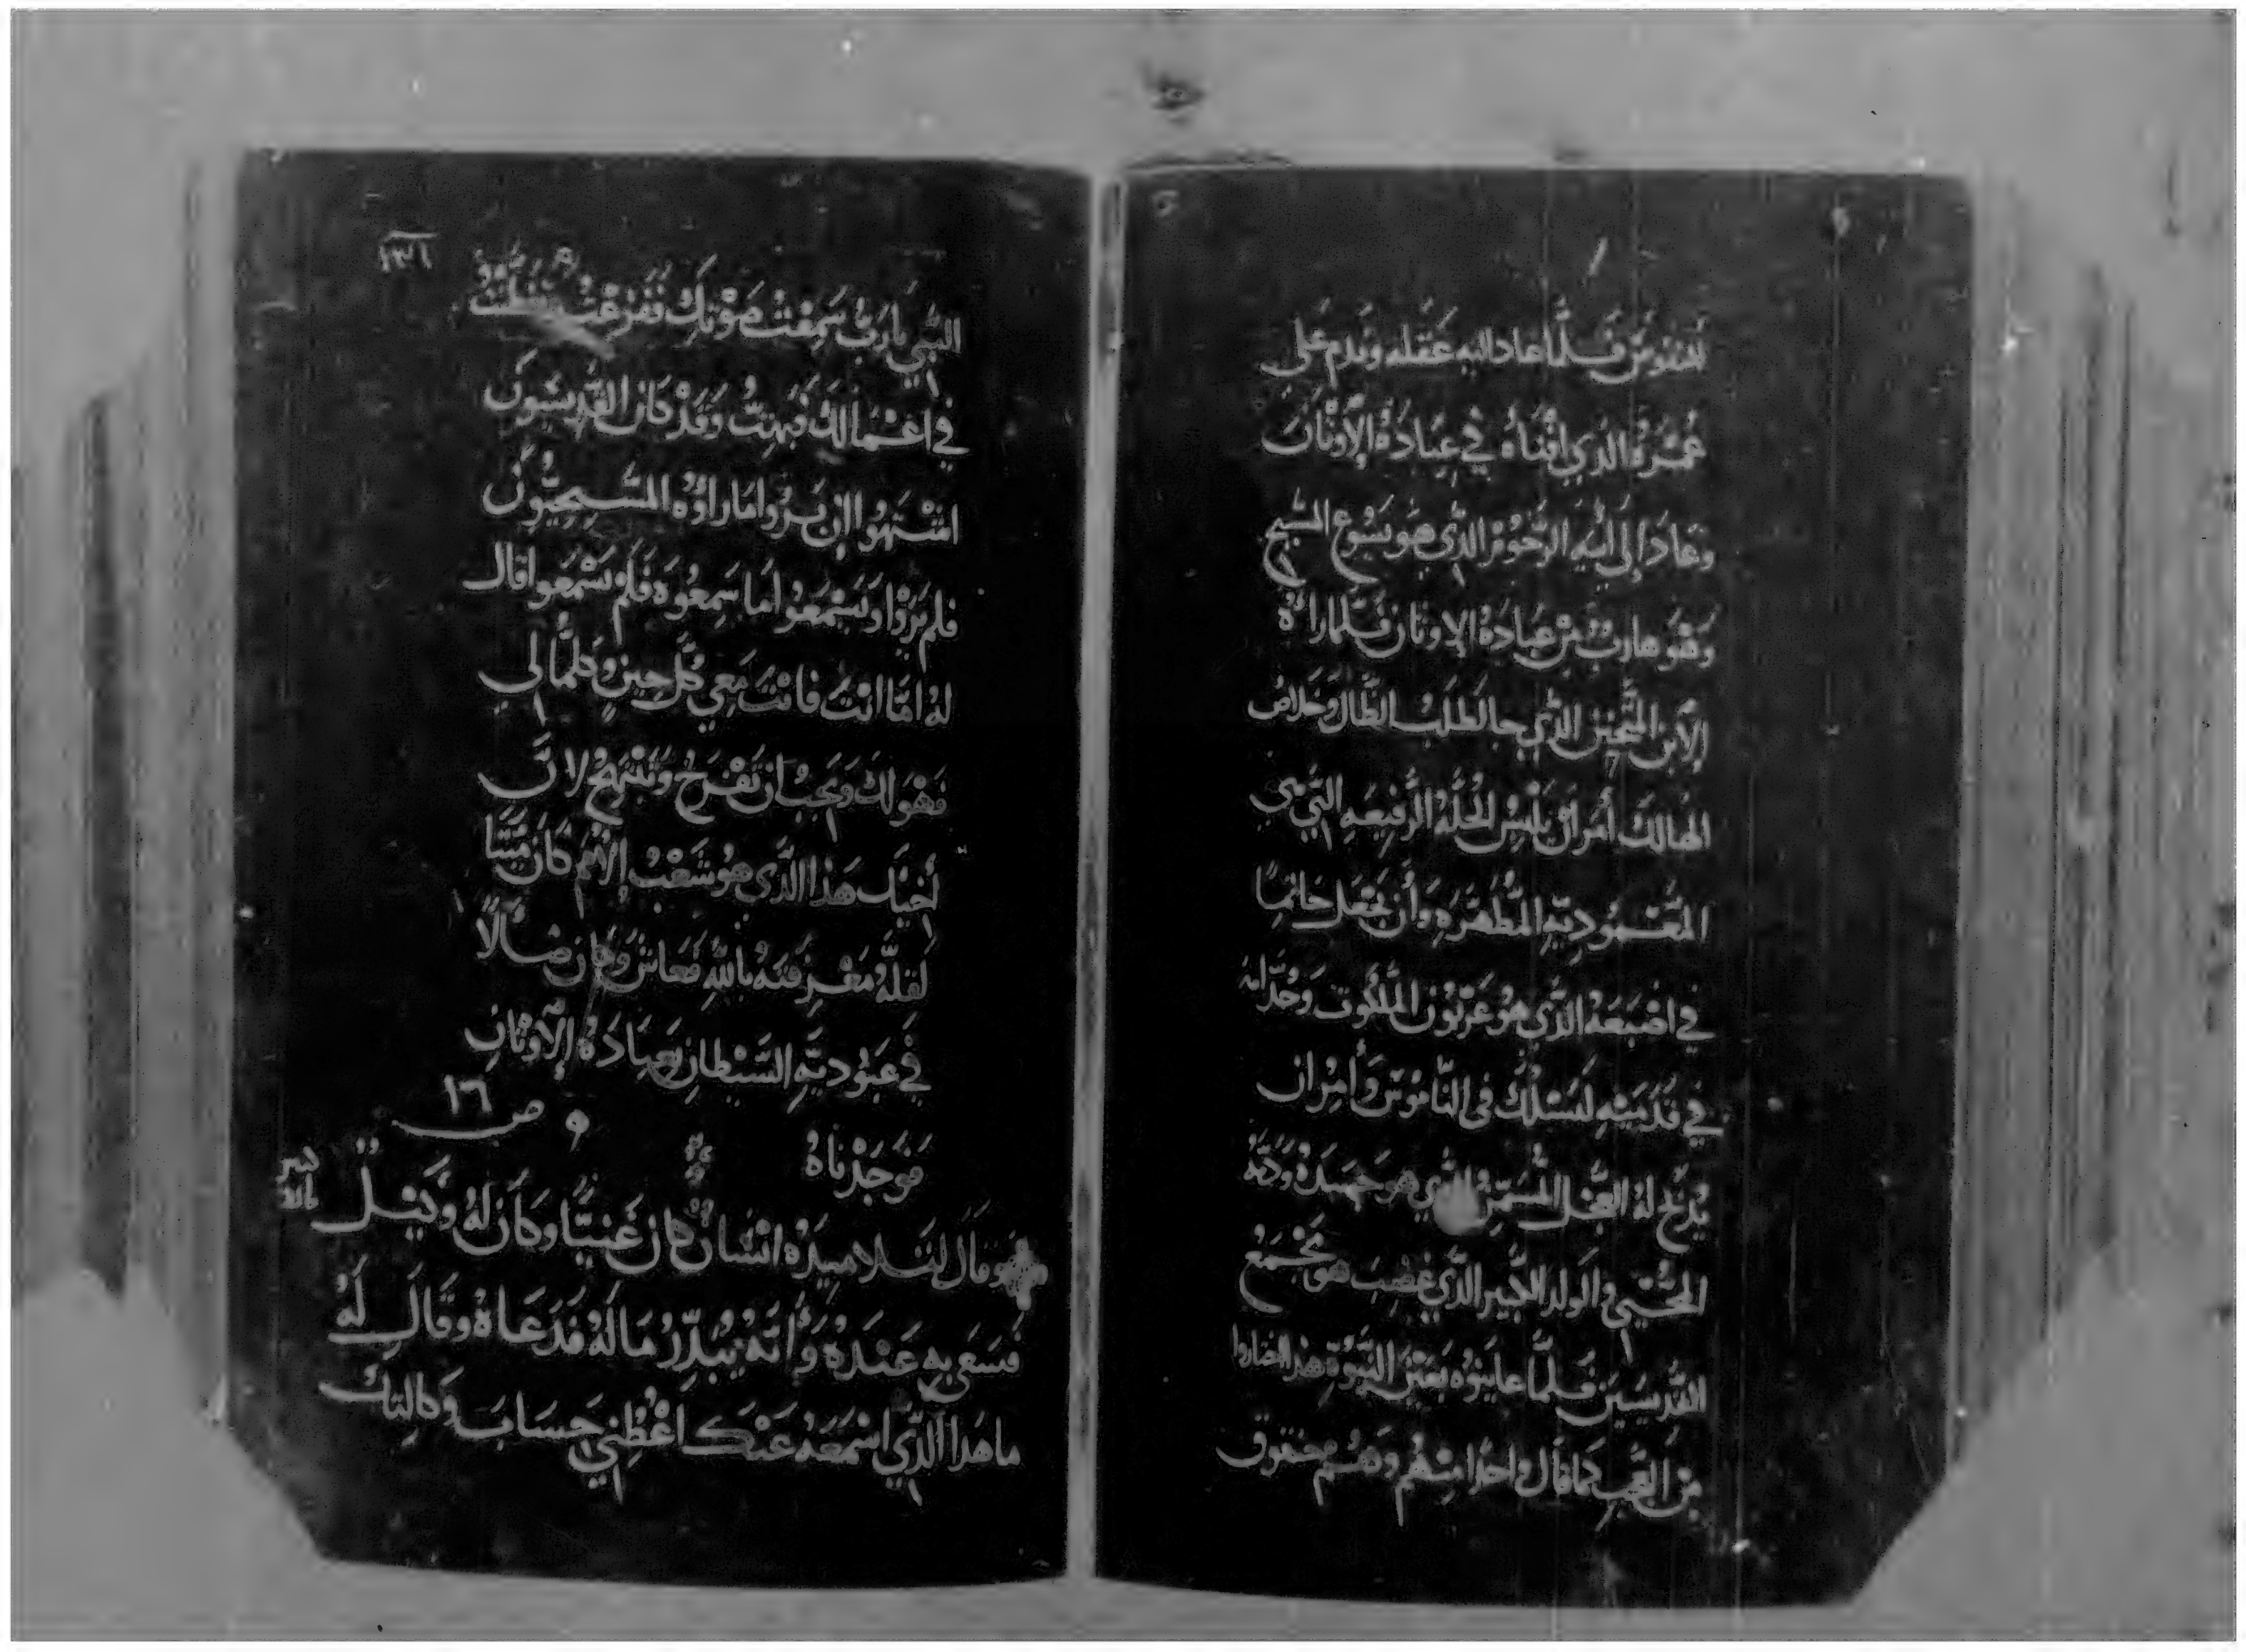 فلما عاد اليه عقله وندم على
عُمْرَهُ الذي افْناه في عِبادَةُ الاَوْثان
وعَادَ إلى ابيهِ الرَّحُوم الذي هو يَسُوع المسيح
وَهْوَ هاربٌ مِنْ عِبادَةُ الاوثان فلمّا راهُ
الأبن المتحنن الذي جا لطلبُ الضّال وخلاصُ
الهالك أمر انْ يلبسُ الحُلّهُ الرّفيعَهِ التي هي
المَعْموديّهِ المُطهّرهِ وَأن يَجْعل خاتمًا
في اصْبَعَهُ الذي هو عَرْبُون المَلكوت وَحْدا له
في قدَميْهِ لَيَسْلُكُ في النّاموس وَأمِرْ ان
يُدبح لهُ العِجْل المُسَمّن الذي هو جَسَدهُ وَدَمّهُ
المُحْيي والولد الكبير الذي غضِبَ هو مَجْمَعُ
القديسَين فلمّا عاينوُه بَعَيْن النّبُوّةِ هذا صاروا
مِن العجب كما قال واحدًا مِنْهُم وَهُم حبقوق
١٣٦
النّبي يا ربُّ سَمِعْتُ صوْتك ففزعْتُ وتأملتُ
في اعْمالك فبهتُّ وَقدْ كان القديسَون
اشْتهوا ان يَروا ما راوْهُ المَسيحيّون
فلم يَرَوْا وَيَسْمَعوا ما سَمِعُوَه فلم يَسْمَعوا قال
لهُ امّا انْتَ فانْتَ مَعي كُلّ حِينٍ وكلّما لي
فهْو لك وَيجبُ ان تفْرَحُ وَتبْتهجُ لانّ
أخيك هَذا الذي هو شَعْبُ الاُمم كانَ مَيّتًا
لقلّهُ مَعْرفته باللهِ فعاش وكان ضالًا
في عبُوديّةِ الشيْطانِ بعِبادَهُ الأوثان
فوَجَدْناهُ
ص ١٦
وقال لتلاميذهُ انسَانٌ كان غنيّا وكانَ لهُ وَكيْل
فسَعى بهِ عَنْدهُ وأنهُ يُبدّرُ مَا لهُ فدَعَاهُ وقالَ لهُ
ما هَدا الذي اسْمَعهُ عَنْك اعْطِني حِسَابَ وَكالتِك